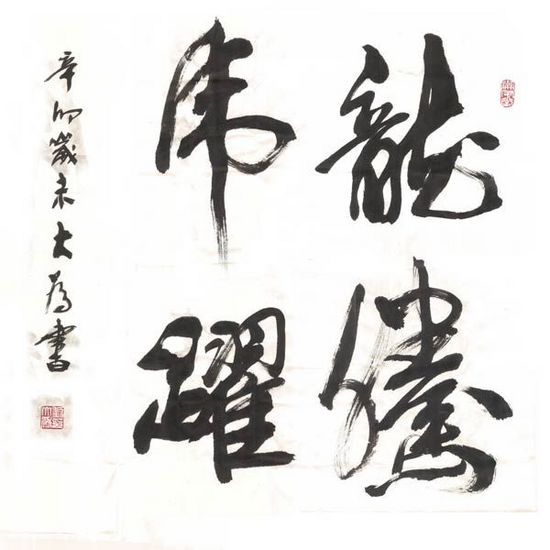 龍騰
虎躍
辛卯歲末大為書